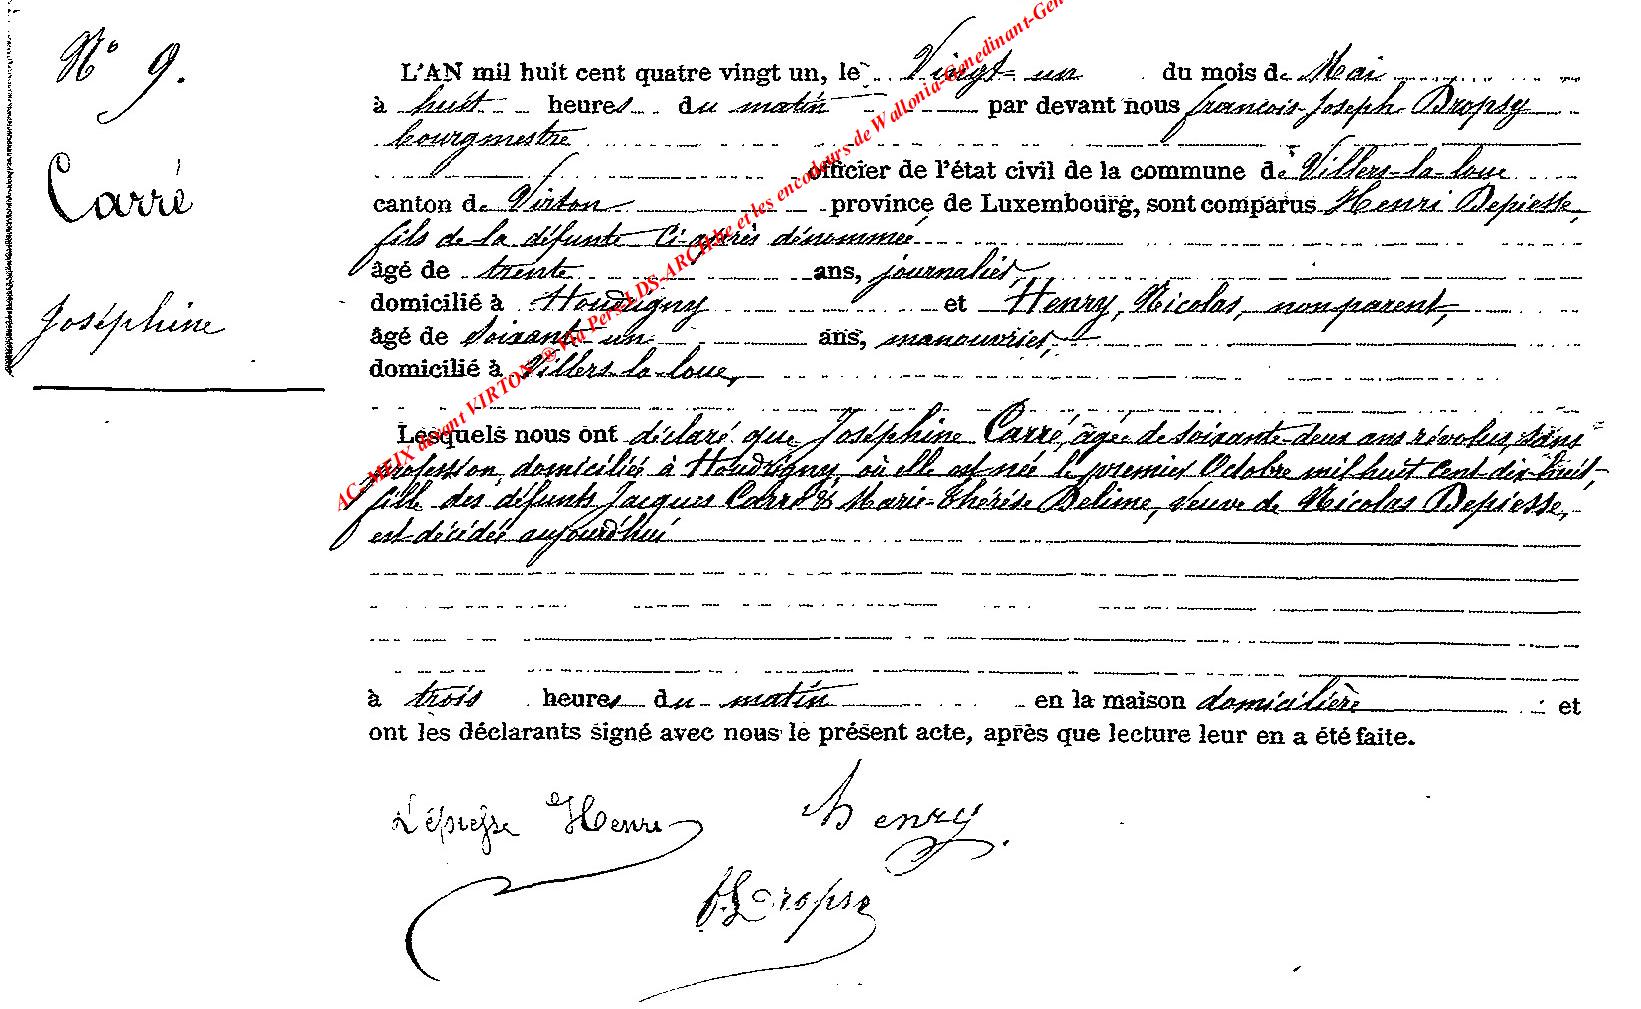 N° 9.
Carré
Joséphine
L'AN mil huit cent quatre vingt un, le Vingt-un du mois de Mai
à huit heures du matin par devant nous françois-Joseph Dropsy
bourgmestre
officier de l'état civil de la commune de Villers-la-loue
canton de Virton province de Luxembourg, sont comparus Henri Depiesse,
fils de la défunte ci-après dénommée
âgé de trente ans, journalier,
domicilié à Houdrigny et Henry, Nicolas, non parent,
âgé de Soixante un ans, manouvrier,
domicilié à Villers-la-loue,
Lesquels nous ont déclaré que Joséphine Carré, âgée de soixante-deux ans révolus, sans
profession, domiciliée à Houdrigny, où elle est née le premier Octobre mil huit cent dix-huit,
fille des défunts Jacques Carré & Marie-Thérèse Delime, veuve de Nicolas Depiesse,
est décédée aujourd'hui
à trois heures du matin en la maison domicilière et
ont les déclarants signé avec nous le présent acte, après que lecture leur en a été faite.
Depiesse Henri
henry
f. J. Dropsy
AC-MEIX devant VIRTON ® Via Pers-LDS-ARCH.be et les encodeurs de Wallonia-Genedinant-Gen